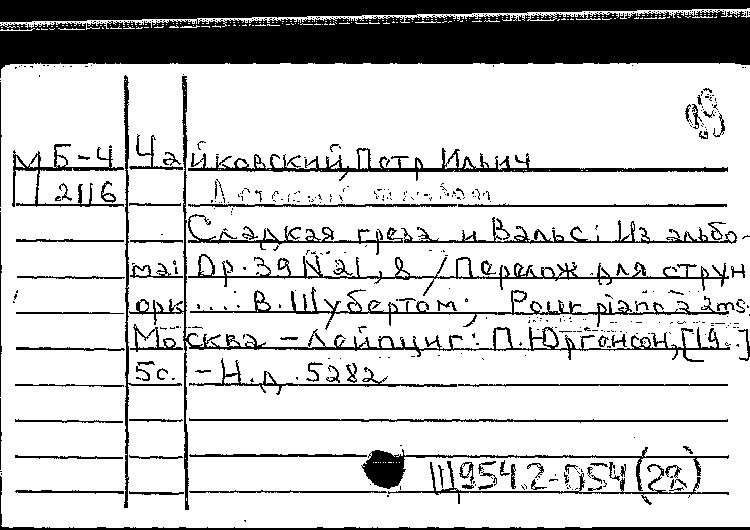 99
М Б-4 Чайковский, Петр Ильич
2116 Детский альбом
Сладкая греза и Вальс: Из альбо-
ма: Op. 39 N 21, 8 / Перелож. для струн
орк.... В. Шубертом; Pour piano à 2ms.
Москва - Лейпциг: П. Юргенсон, [19..]
5с. - Н.д. 5282
Щ954.2-054(28)